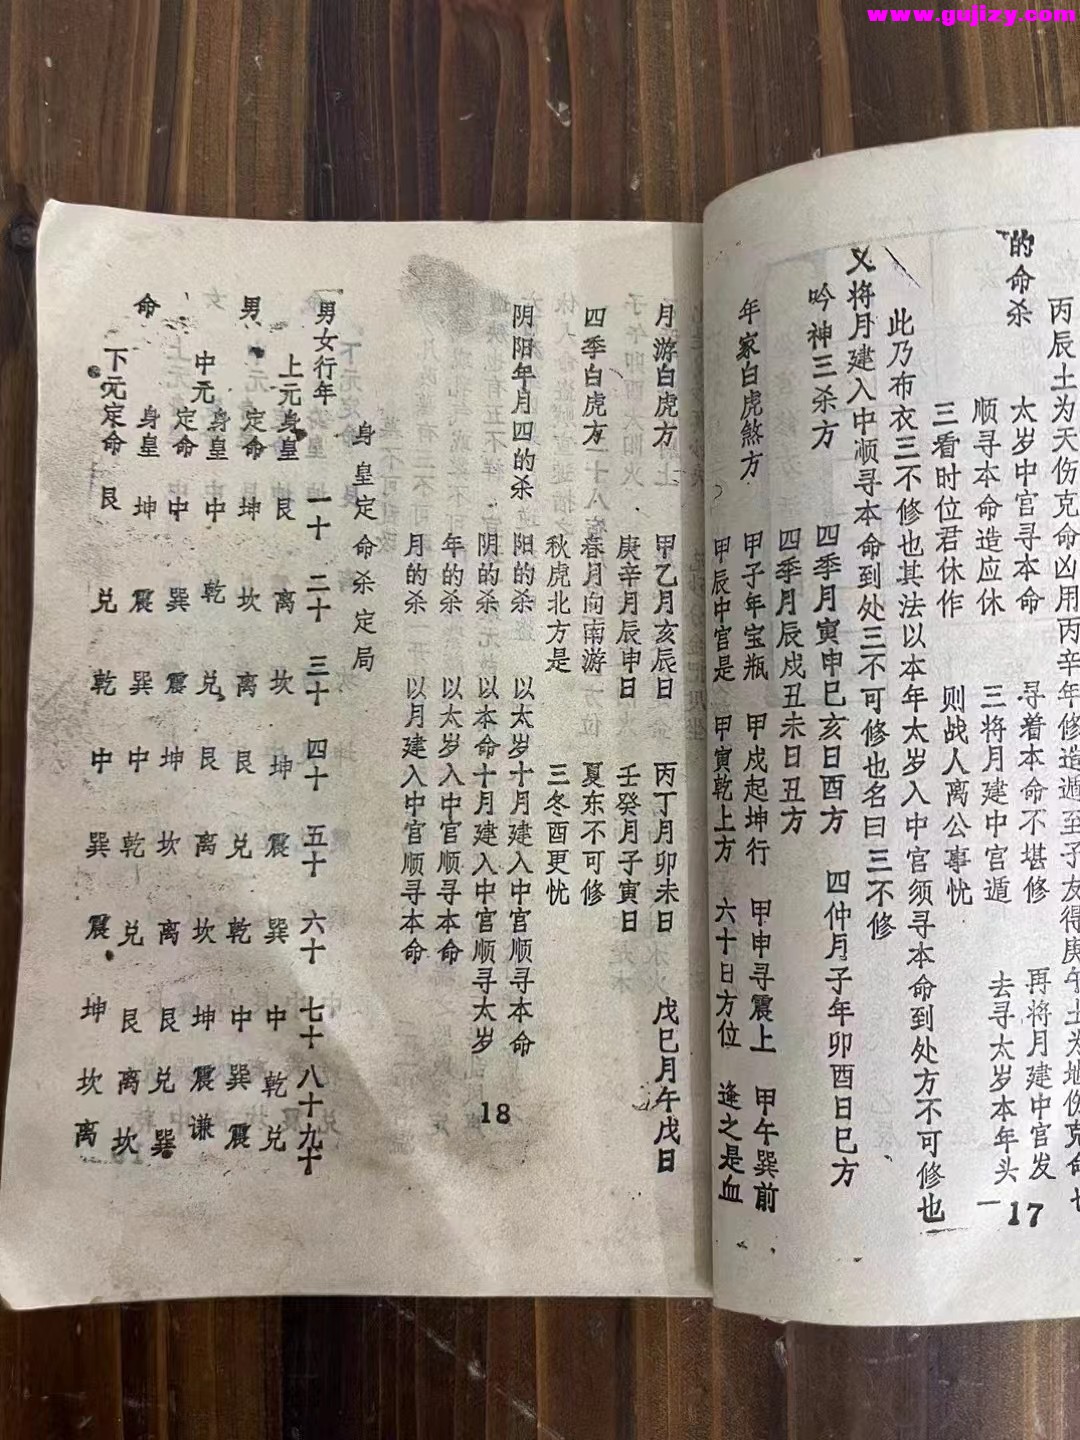 丙辰土为天伤克命凶用丙辛年修造遁至子友得庚午土为地伤克命
的命杀 太岁中宫寻本命 寻着本命不堪修 再将月建中宫发
顺寻本命造应休 三将月建中宫遁 去寻太岁本年头
三看时位君休作 则战人离公事忧
此乃布衣三不修也其法以本年太岁入中宫须寻本命到处方不可修也
又将月建入中顺寻本命到处三不可修也名曰三不修
吟神三杀方 四季月寅申巳亥日酉方 四仲月子年卯酉日巳方
四季月辰戌丑未日丑方
年家白虎煞方 甲子年宝瓶 甲戌起坤行 甲申寻震上 甲午巽前
甲辰中宫是 甲寅乾上方 六十日方位 逢之是血
17
月游白虎方 甲乙月亥辰日 丙丁月卯未日 戊巳月午戊日
庚辛月辰申日 壬癸月子寅日
四季白虎方 春月向南游 夏东不可修
秋虎北方是 三冬酉更忧
阴阳年月四的杀 阳的杀 以太岁十月建入中宫顺寻本命
阴的杀 以本命十月建入中宫顺寻太岁
年的杀 以太岁入中宫顺寻本命
月的杀 以月建入中宫顺寻本命
18
身皇定命杀定局
男女行年 一十 二十 三十 四十 五十 六十 七十 八十 九十
上元身皇 艮 离 坎 坤 震 巽 中 乾 兑
男 定命 坤 坎 离 艮 兑 乾 中 巽 震
中元身皇 中 乾 兑 艮 离 坎 坤 震 谦
定命 中 巽 震 坤 坎 离 艮 兑 巽
命 身皇 坤 震 巽 中 乾 兑 艮 离 坎
下元定命 艮 兑 乾 中 巽 震 坤 坎 离
www.gujizy.com